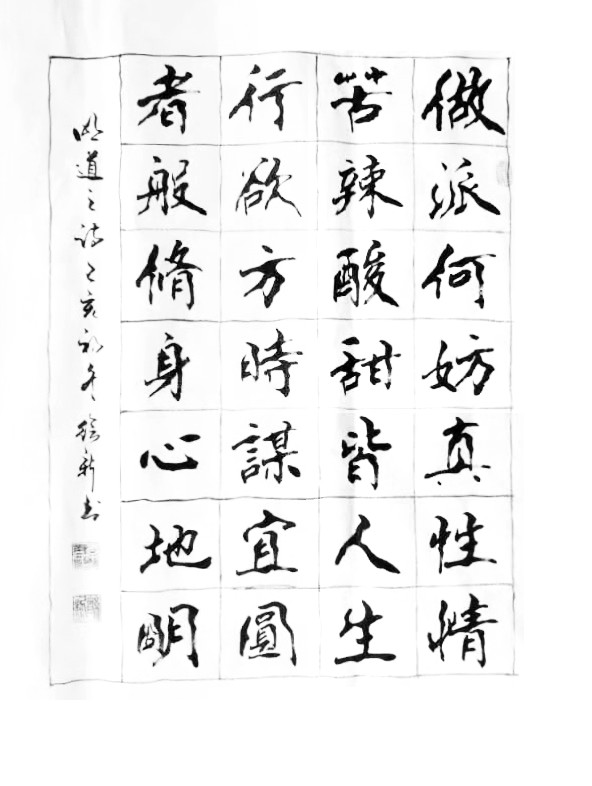 做派何妨真性情
苦辣酸甜皆人生
行欲方時謀宜圓
者般脩身心地明
道之诗乙亥初冬 新书